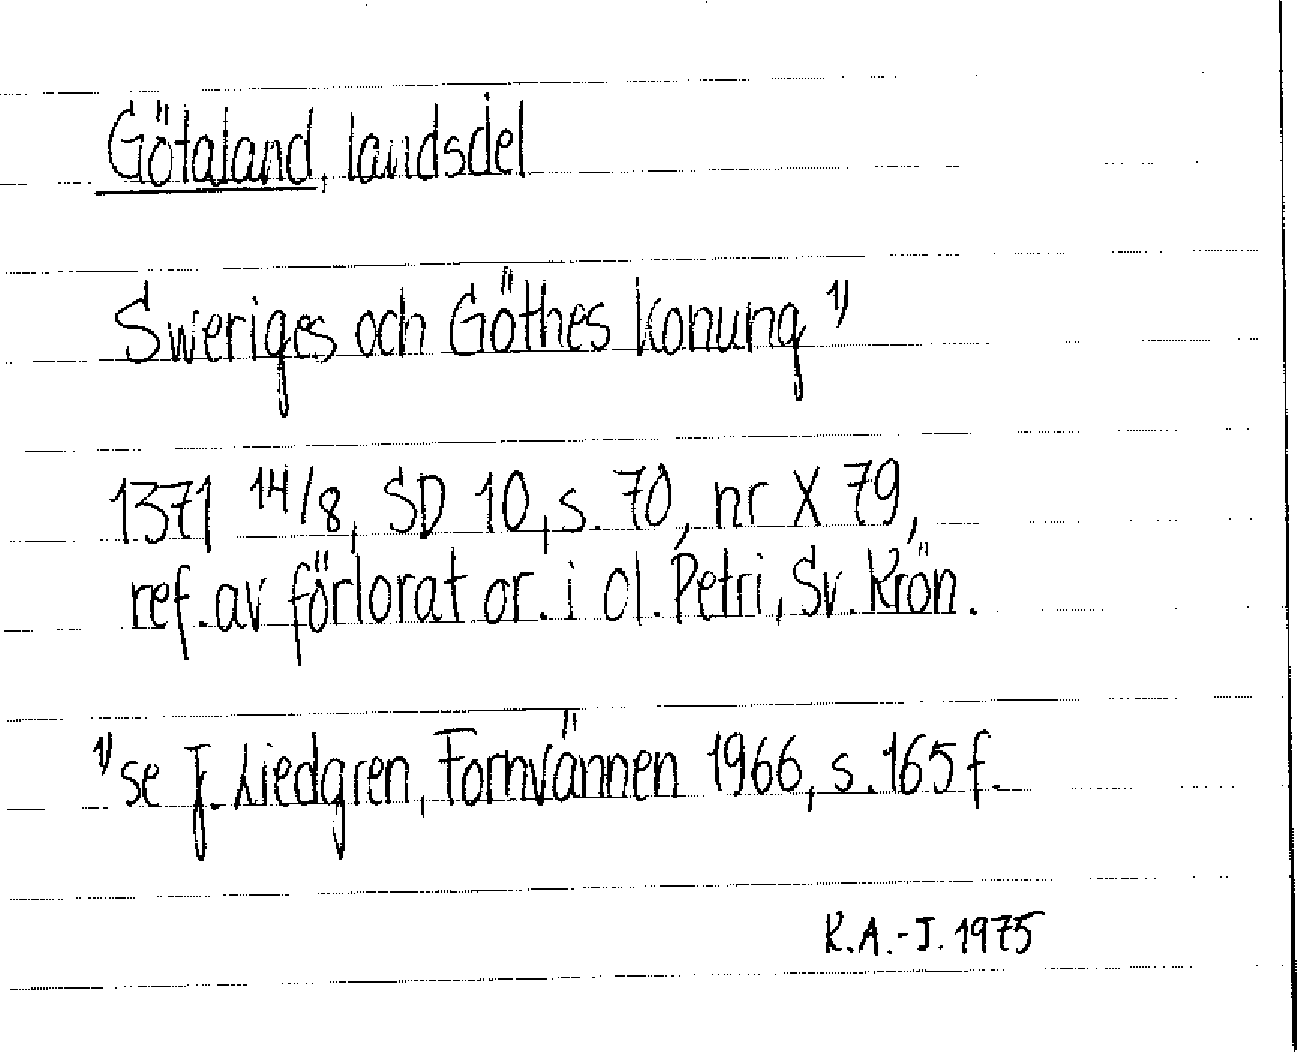 Götaland, landsdel
Sweriges och Göthes konung 1)
1371 14/8, SD 10, s. 70, nr X 79,
ref. av förlorat or. i Ol. Petri, Sv. Krön.
1) se J. Liedgren, Fornvännen 1966, s. 165 f.
K.A.-J. 1975